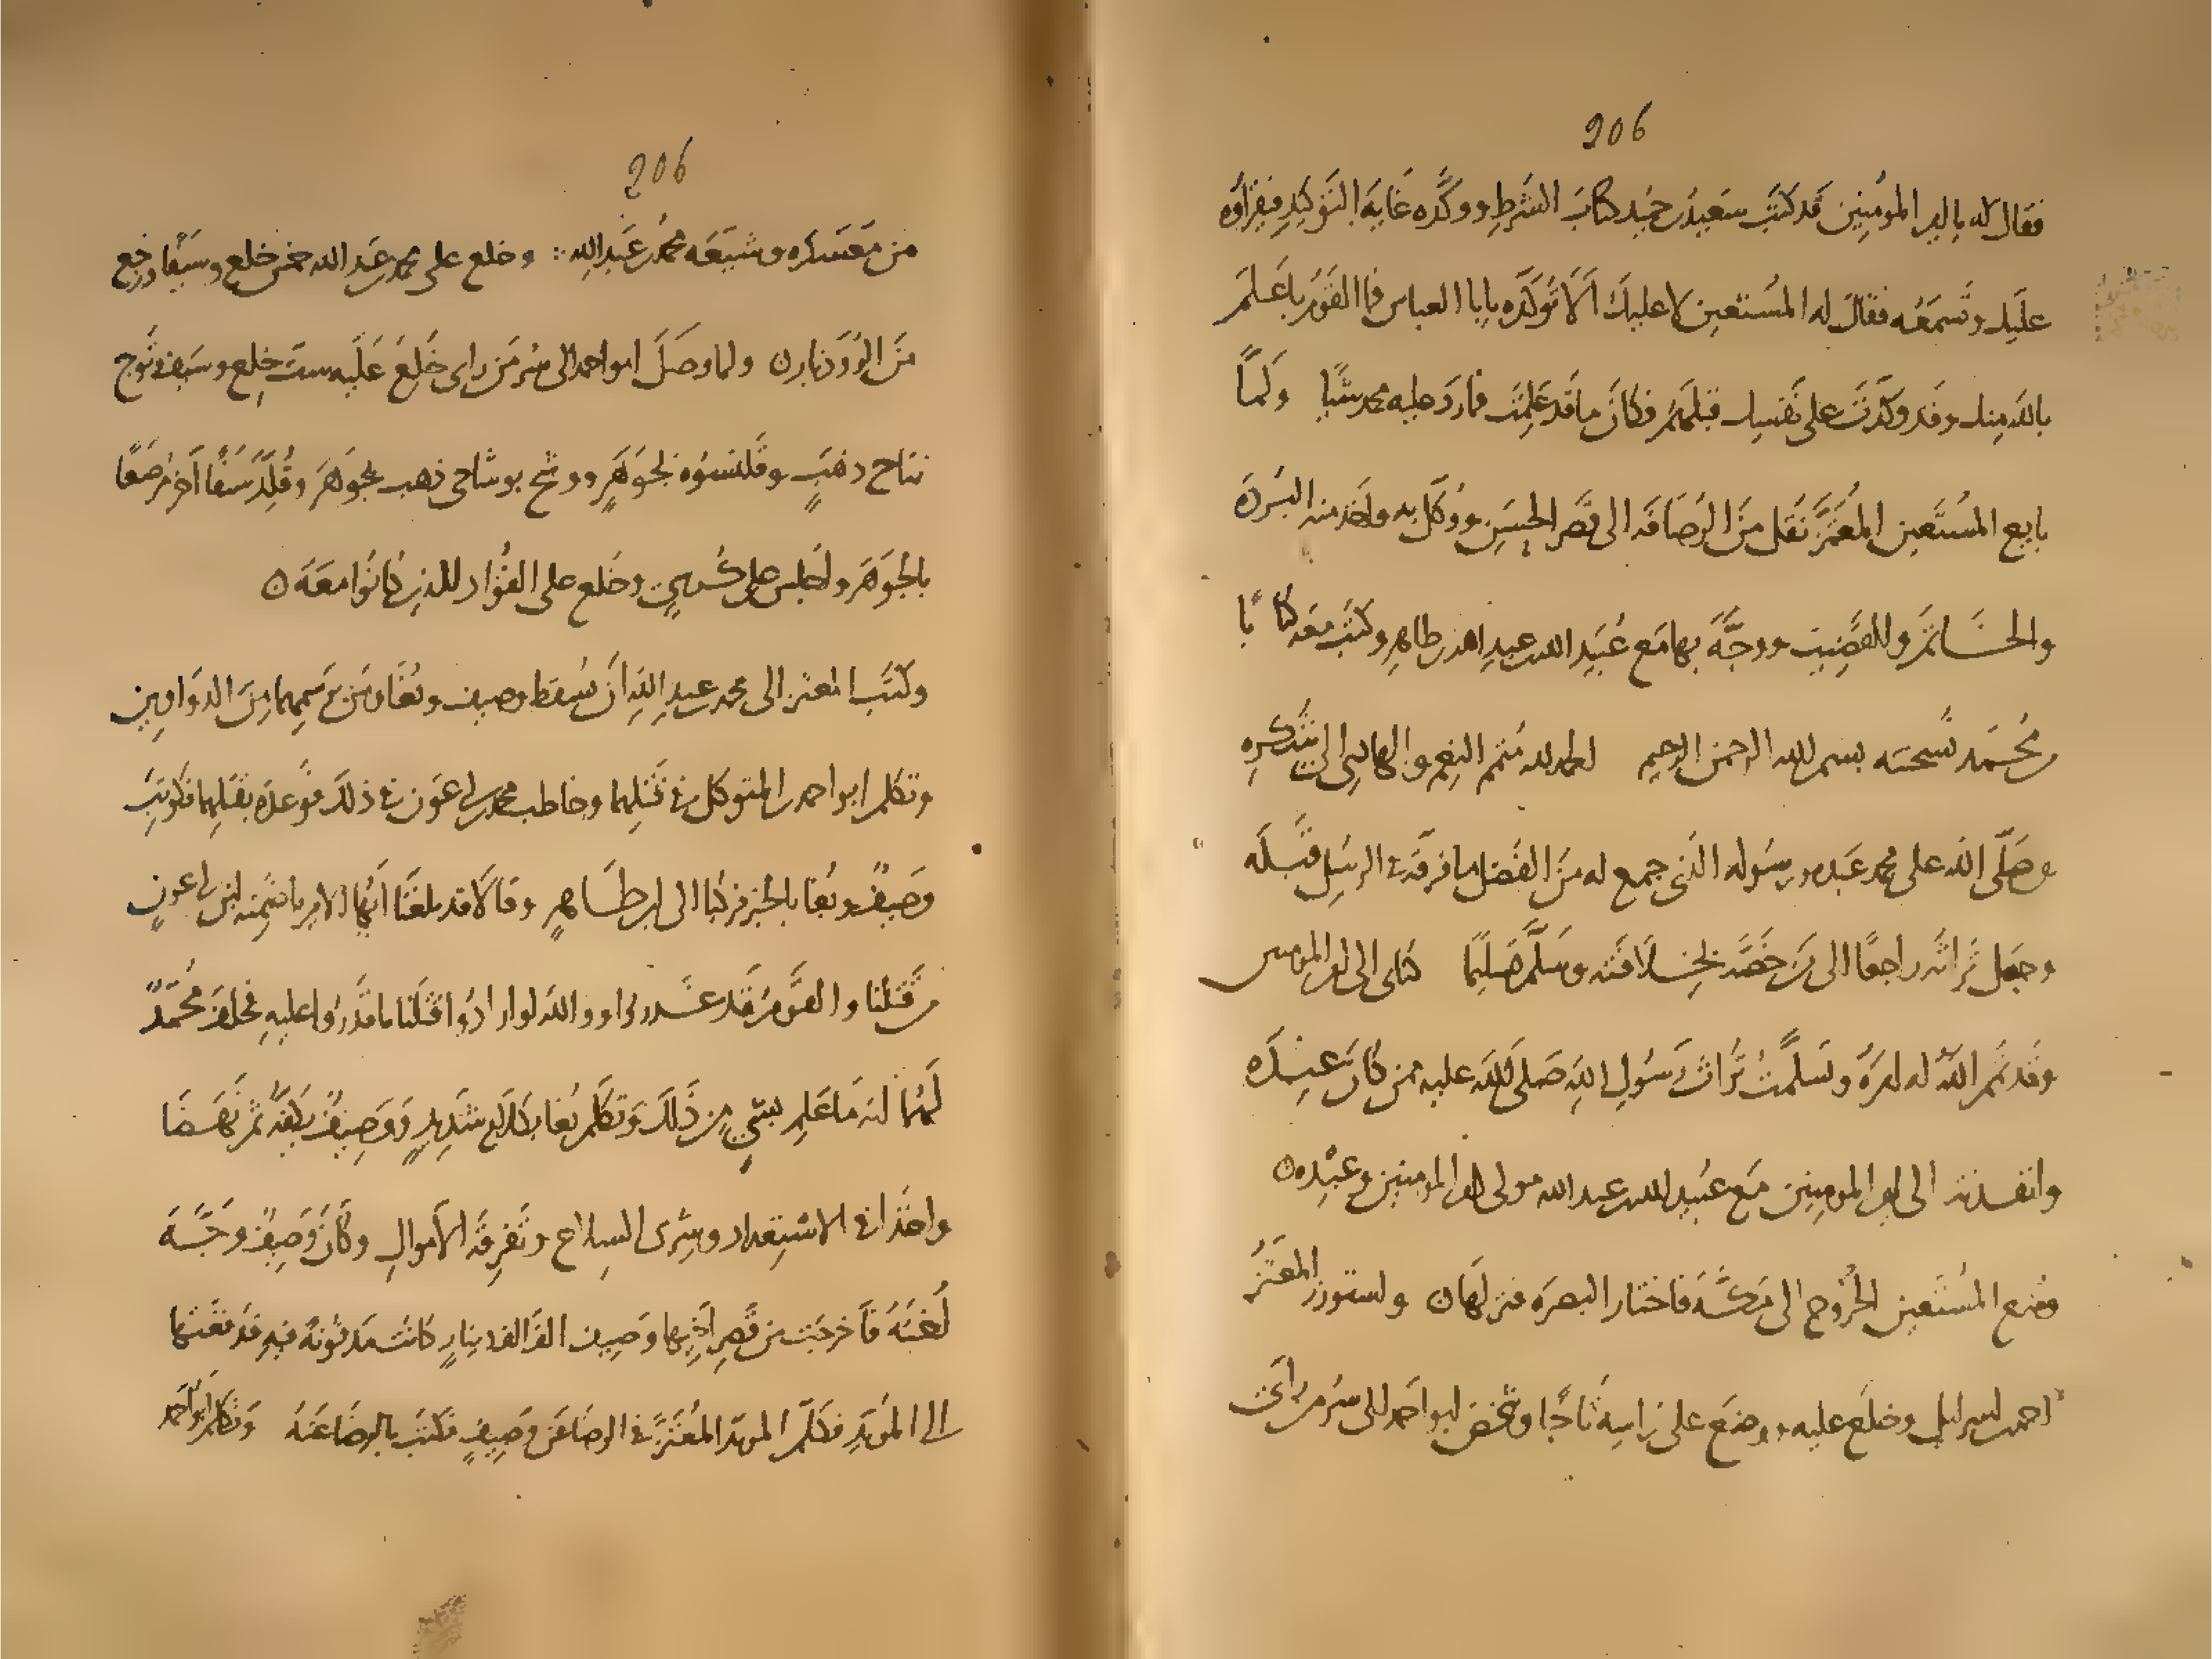 206
فقال له يا امير المومنين قد كتب سعيد بن حميد كتاب الشرط ووكده غاية التوكيد فيقراوه
عليك وتسمعه فقال له المستعين لا عليك الا توكده يابا العباس فما القوم باعلم
بالله منك وقد وكدت على نفسك قبلهم فكان ما قد علمت فما رد عليه محمد شيا ولما
بايع المستعين المعتز نقل من الرصافه الى قصر الحسن ووكل به واخذ منه البردة
والخاتم والقضيب ووجه بها مع عبيد الله بن عبد الله بن طاهر وكتب معه كتابا
من محمد نسخته بسم الله الرحمن الرحيم الحمد لله متمم النعم والهادى الى شكره
وصلى الله على محمد عبده ورسوله الذى جمع له من الفضل ما فرقه فى الرسل قبله
وجعل تراثه راجعا الى من خصه بخلافته وسلم تسليما كتابى الى امير المومنين
وقد تمم الله له امره وتسلمت تراث رسول الله صلى الله عليه ممن كان عنده
وانفذته الى امير المومنين مع عبيد الله بن عبد الله مولى امير المومنين وعبده
ومنع المستعين الخروج الى مكة فاختار البصره فنزلها واستوزر المعتز
احمد بن اسرايل وخلع عليه ووضع على راسه تاجا وشخص ابو احمد الى سر من راى
206
من معسكره وشيعه محمد بن عبد الله وخلع على محمد بن عبد الله خمس خلع وسيفا ورجع
من الروذبارن ولما وصل ابو احمد الى سر من راى خلع عليه ست خلع وسيف وتوج
بتاج ذهب وقلنسوه بجوهر ووشح بوشاحى ذهب بجوهر وقلد سيفا آخر مرصعا
بالجوهر واجلس على كرسي وخلع على القواد الذين كانوا معه
وكتب المعتز الى محمد بن عبد الله ان يسقط وصيف وبغا ومن برسمهما من الدواوين
وتكلم ابو احمد بن المتوكل فى قتلهما وخاطب محمد بن ابى عون فى ذلك فوعده بقتلهما فكوتب
وصيف وبغا بالخبر فركبا الى ابن طاهر وقالا قد بلغنا ايها الامير ما ضمنه ابن ابى عون
من قتلنا والقوم قد غدروا ووالله لو ارادوا قتلنا ما قدروا عليه فحلف محمد
لهما انه ما علم بشي من ذلك وتكلم بغا بكلام شديد ووصيف يكفه ثم نهضا
واخذا فى الاستعداد وشرى السلاح وتفرقة الاموال وكان وصيف وجه
اخته فاخرجت من قصر اخيها وصيف الف الف دينار كانت مدفونه فيه فدفعتها
الى المويد فكلم المويد المعتز فى الرضا عن وصيف فكتب بالرضا عنه وتكلم ابو احمد